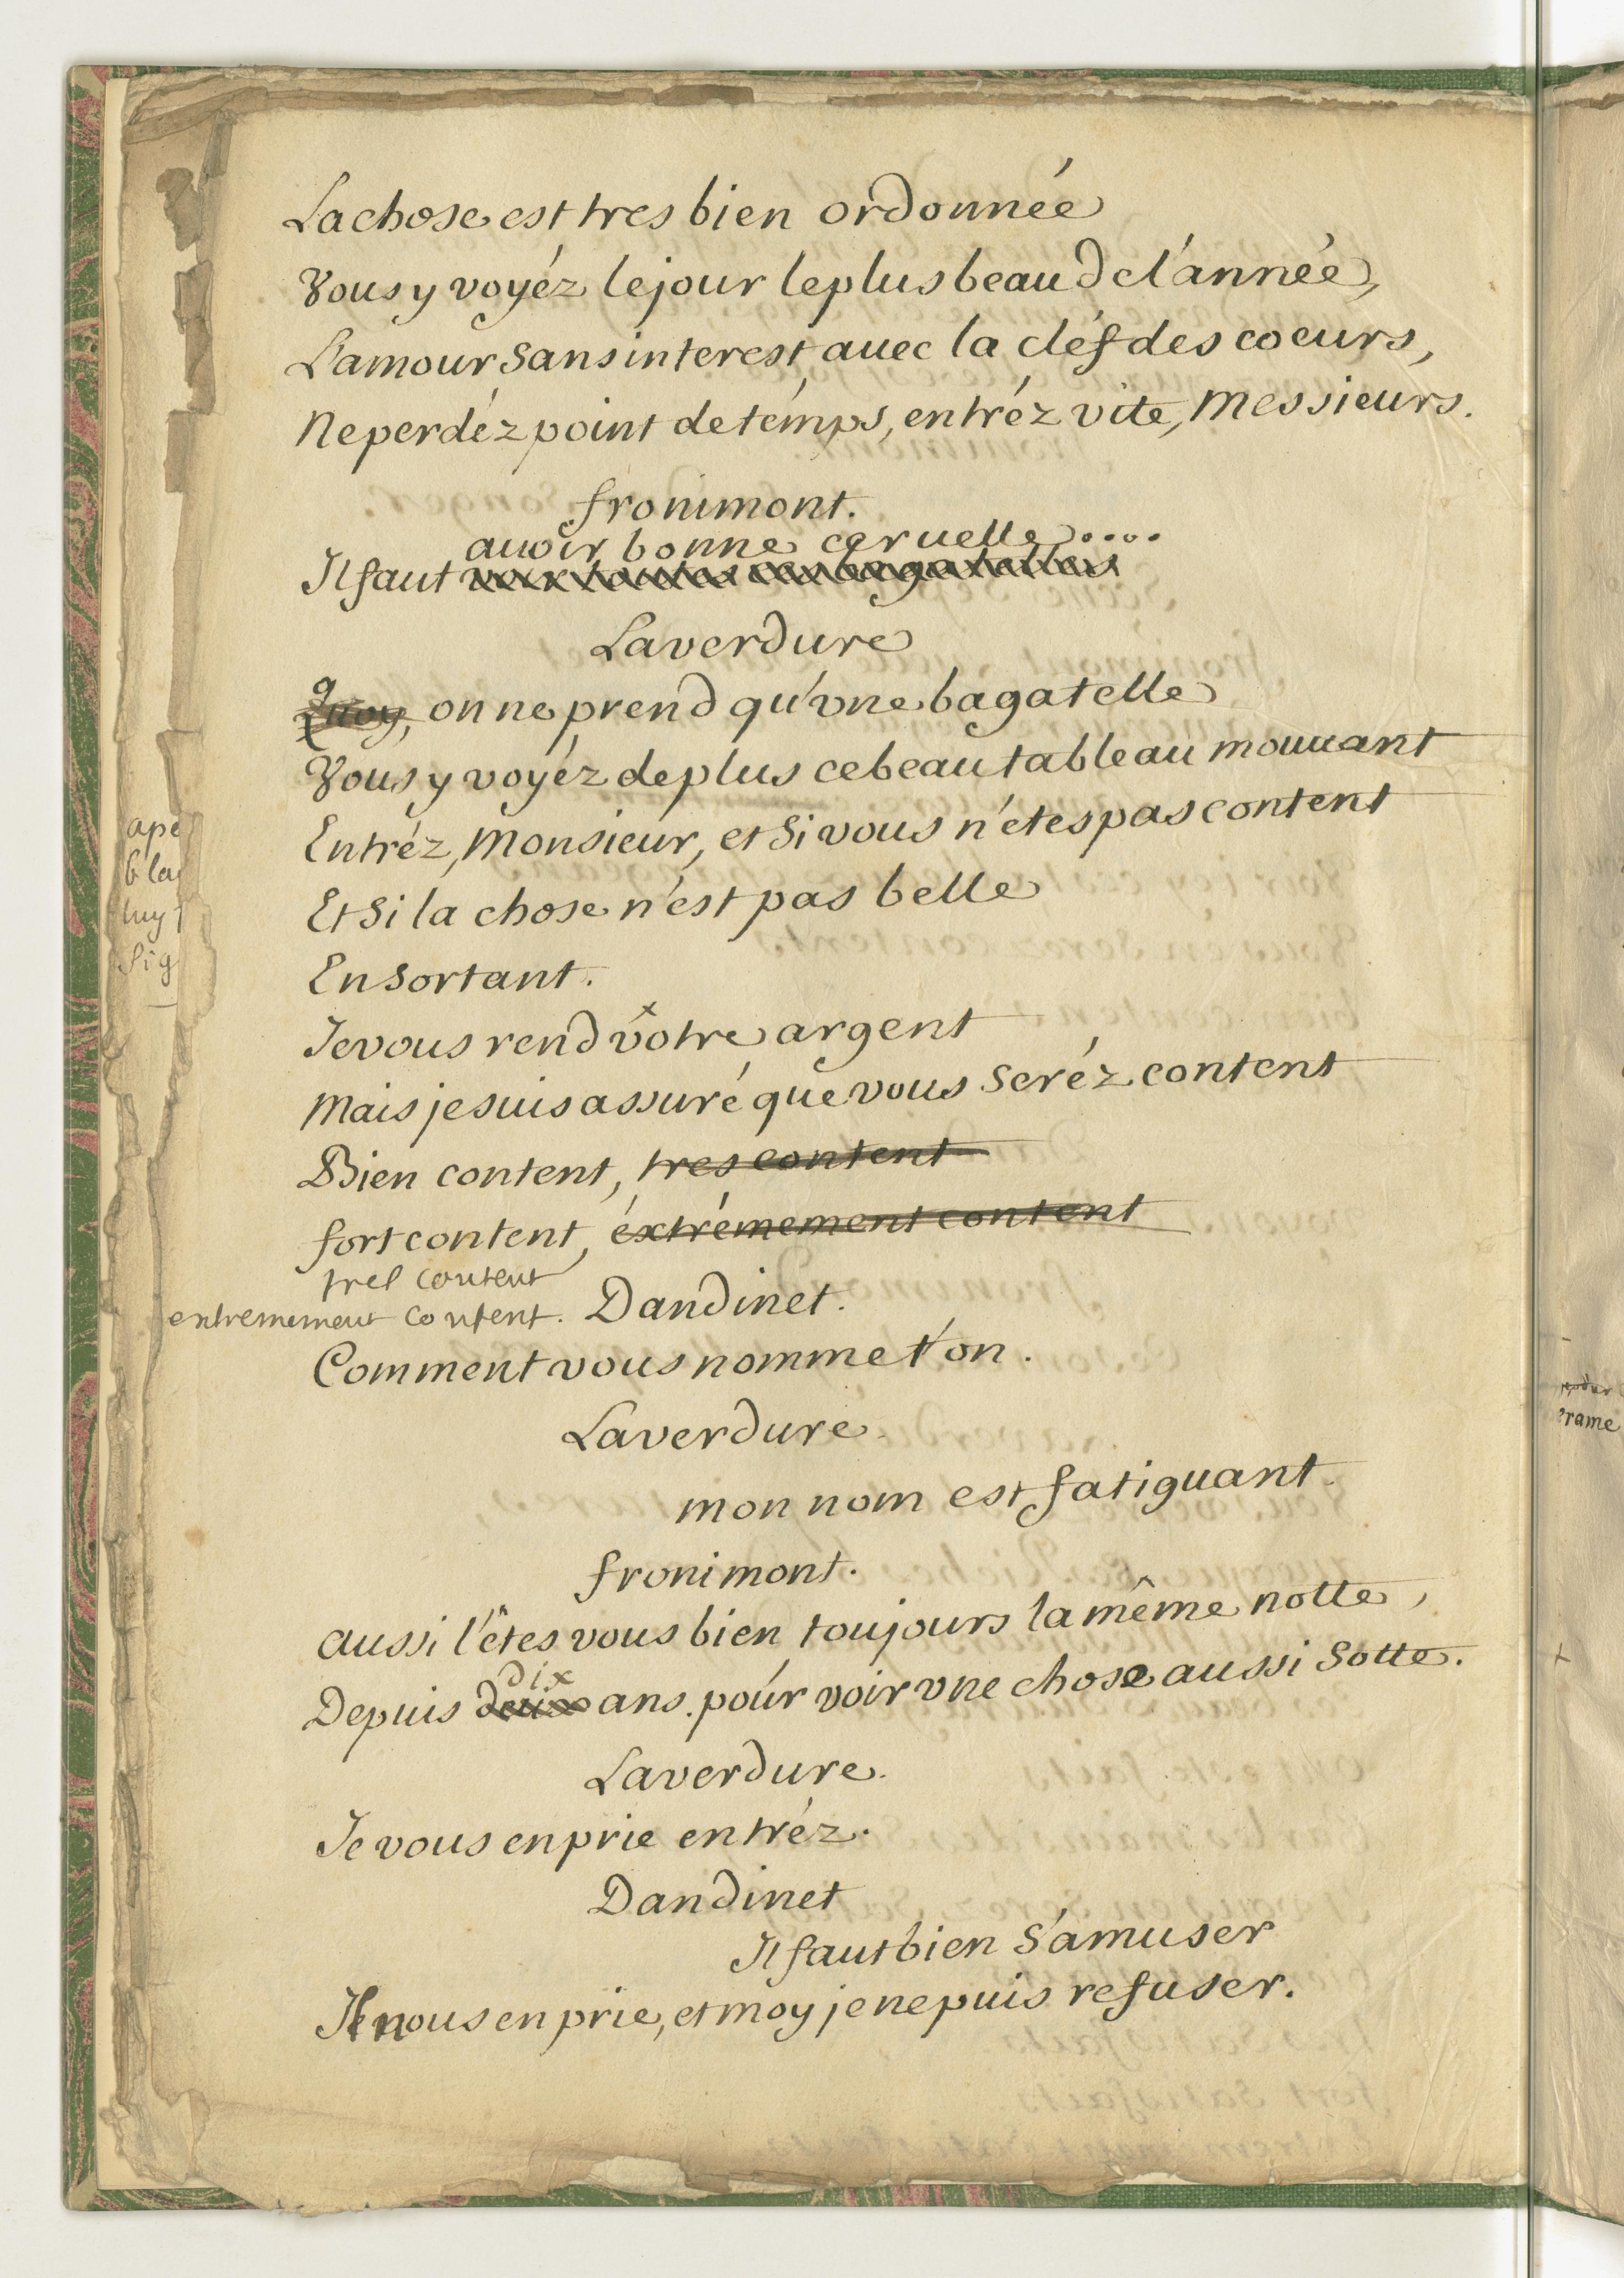 La chose est tres bien ordonnée
Vous y voyéz le jour le plus beau de l'année,
L'amour sans interest auec la cléf des coeurs,
Ne perdéz point de témps, entréz vite, Messieurs.
fronimont.
auoir bonne ceruelle....
Il faut voir toutes ces bagatelles
Laverdure
Quoy, on ne prend qu'vne bagatelle
Vous y voyéz de plus ce beau tableau mouuant
Entréz, Monsieur, et si vous n'étes pas content
Et si la chose n'est pas belle
En sortant.
Je vous rend vôtre argent
Mais je suis assuré que vous seréz content
Bien content, tres content
fort content, éxtrémement content
tres content
extremement content. Dandinet.
Comment vous nomme t'on.
Laverdure.
mon nom est fatiguant.
fronimont.
aussi l'êtes vous bien, toujours la même notte,
dix
Depuis deux ans. pour voir vne chose aussi sotte.
Laverdure.
Je vous en prie entréz.
Dandinet
Il faut bien s'amuser
Il nous en prie, et moy je ne puis refuser.
ape
bla
luy
sig
rame